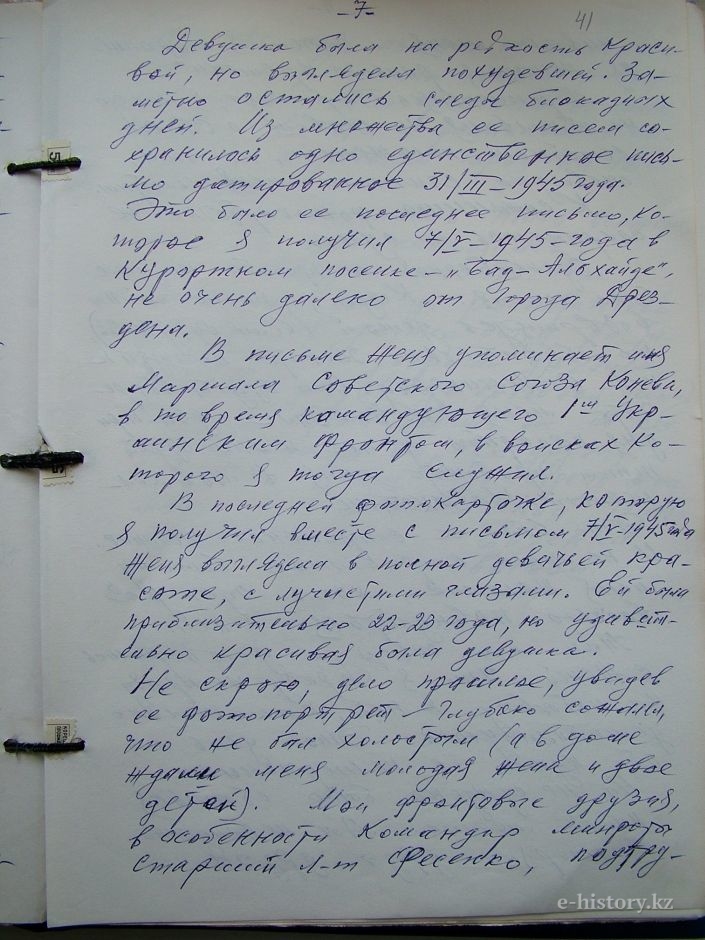 -7-
41
Девушка была на редкость краси-
вой, но выглядела похудевшей. За-
метно остались следы блокадных
дней. Из множества ее писем со-
хранилось одно единственное пись-
мо датированное 31/III-1945 года.
Это было ее последнее письмо, ко-
торое я получил 7/V-1945-года в
Курортном поселке-„Бад-Альхайде",
не очень далеко от города Дрез-
дена.
В письме Женя упоминает имя
Маршала Советского Союза Конева,
в то время командующего 1ым Укр-
аинским фронтом, в войсках ко-
торого я тогда служил.
В последней фотокарточке, которую
я получил вместе с письмом 7/V-1945 года
Женя выглядела в полной девичьей кра-
соте, с лучистыми глазами. Ей было
приблизительно 22-23 года, но удивит-
ельно красивая была девушка.
Не скрою, дело прошлое, увидев
ее фотопортрет-глубоко сожалел,
что не был холостым (а в доме
ждали меня молодая жена и двое
детей). Мои фронтовые друзья,
в особенности командир минроты
старший л-т Фесенко, подтру-
e-history.kz